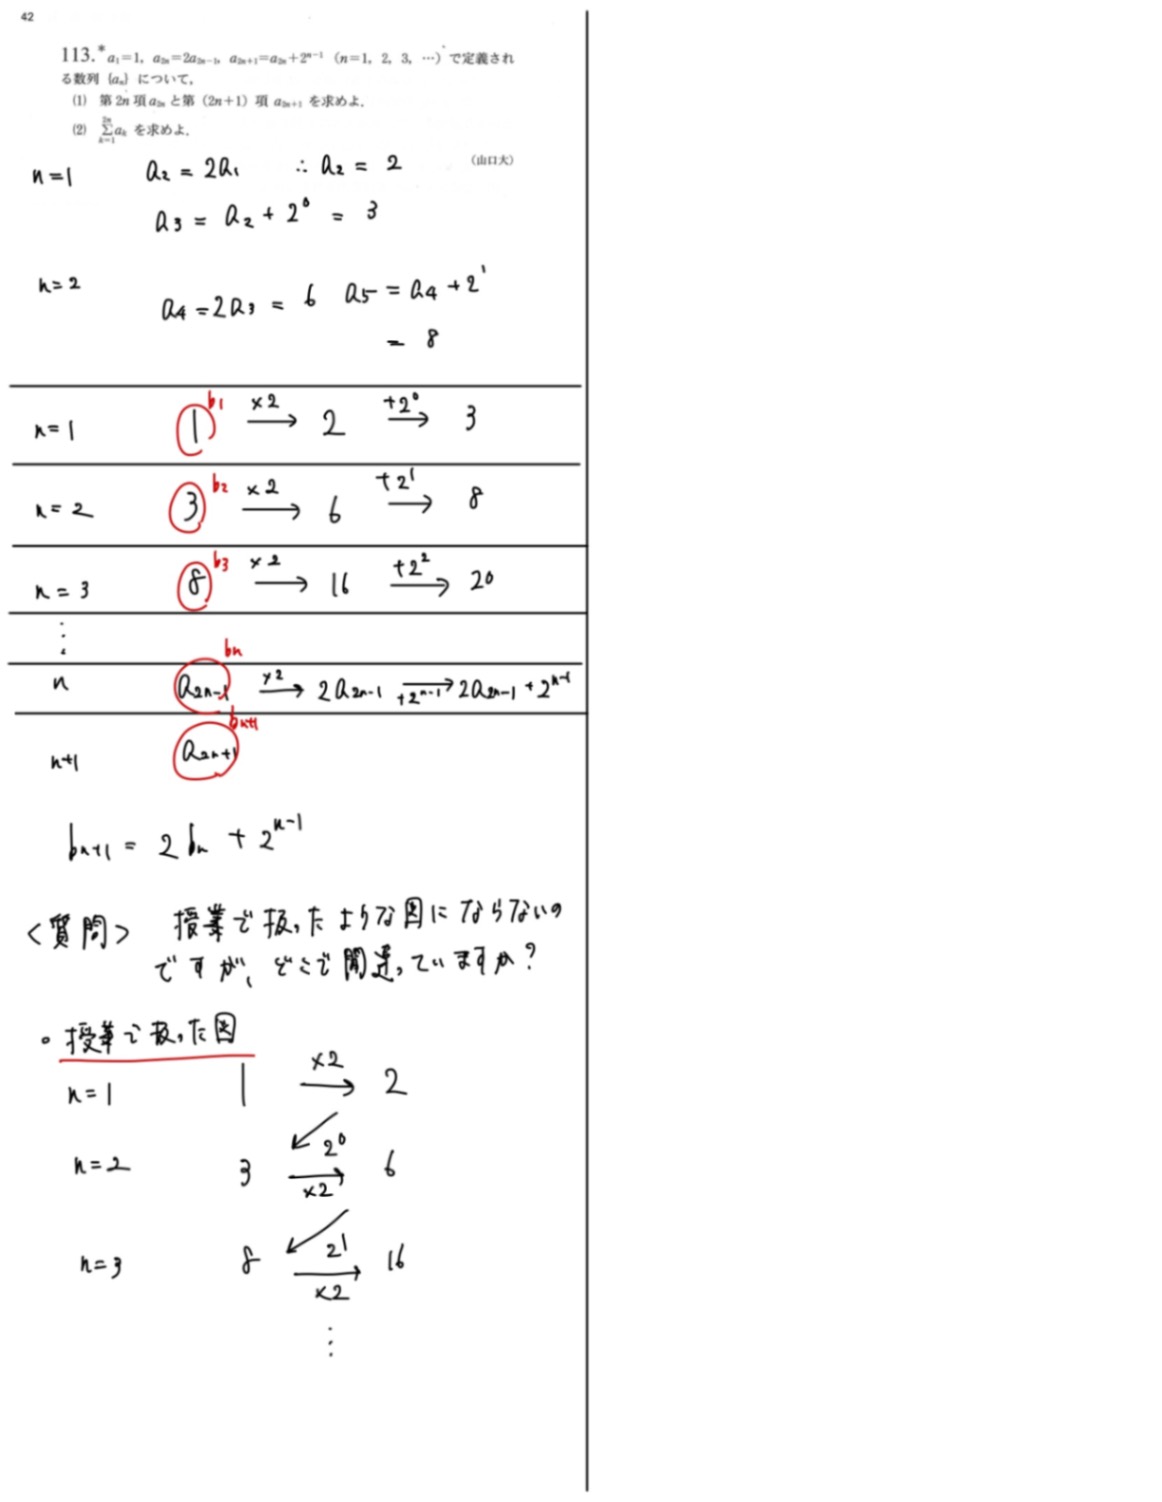 42
113.* a₁=1, a₂ₙ=2a₂ₙ₋₁, a₂ₙ₊₁=a₂ₙ+2ⁿ⁻¹ (n=1, 2, 3, …) で定義され
る数列 {aₙ} について,
(1) 第 2n 項 a₂ₙ と第 (2n+1) 項 a₂ₙ₊₁ を求めよ.
(2) Σ_{k=1}^{2n} aₖ を求めよ.
(山口大)
n=1 a₂ = 2a₁ ∴ a₂ = 2
a₃ = a₂ + 2⁰ = 3
n=2
a₄ = 2a₃ = 6 a₅ = a₄ + 2¹
= 8
n=1 1 b₁ ×2 → 2 +2⁰ → 3
n=2 3 b₂ ×2 → 6 +2¹ → 8
n=3 8 b₃ ×2 → 16 +2² → 20
⋮
n a₂ₙ₋₁ bₙ ×2 → 2a₂ₙ₋₁ → +2ⁿ⁻¹ 2a₂ₙ₋₁ + 2ⁿ⁻¹
n+1 a₂ₙ₊₁ bₙ₊₁
bₙ₊₁ = 2bₙ + 2ⁿ⁻¹
<質問> 授業で扱ったような図にならないの
ですが、どこで間違っていますか?
○ 授業で扱った図
n=1 1 ×2 → 2
↙ 2⁰
n=2 3 → ×2 6
↙ 2¹
n=3 8 → ×2 16
⋮